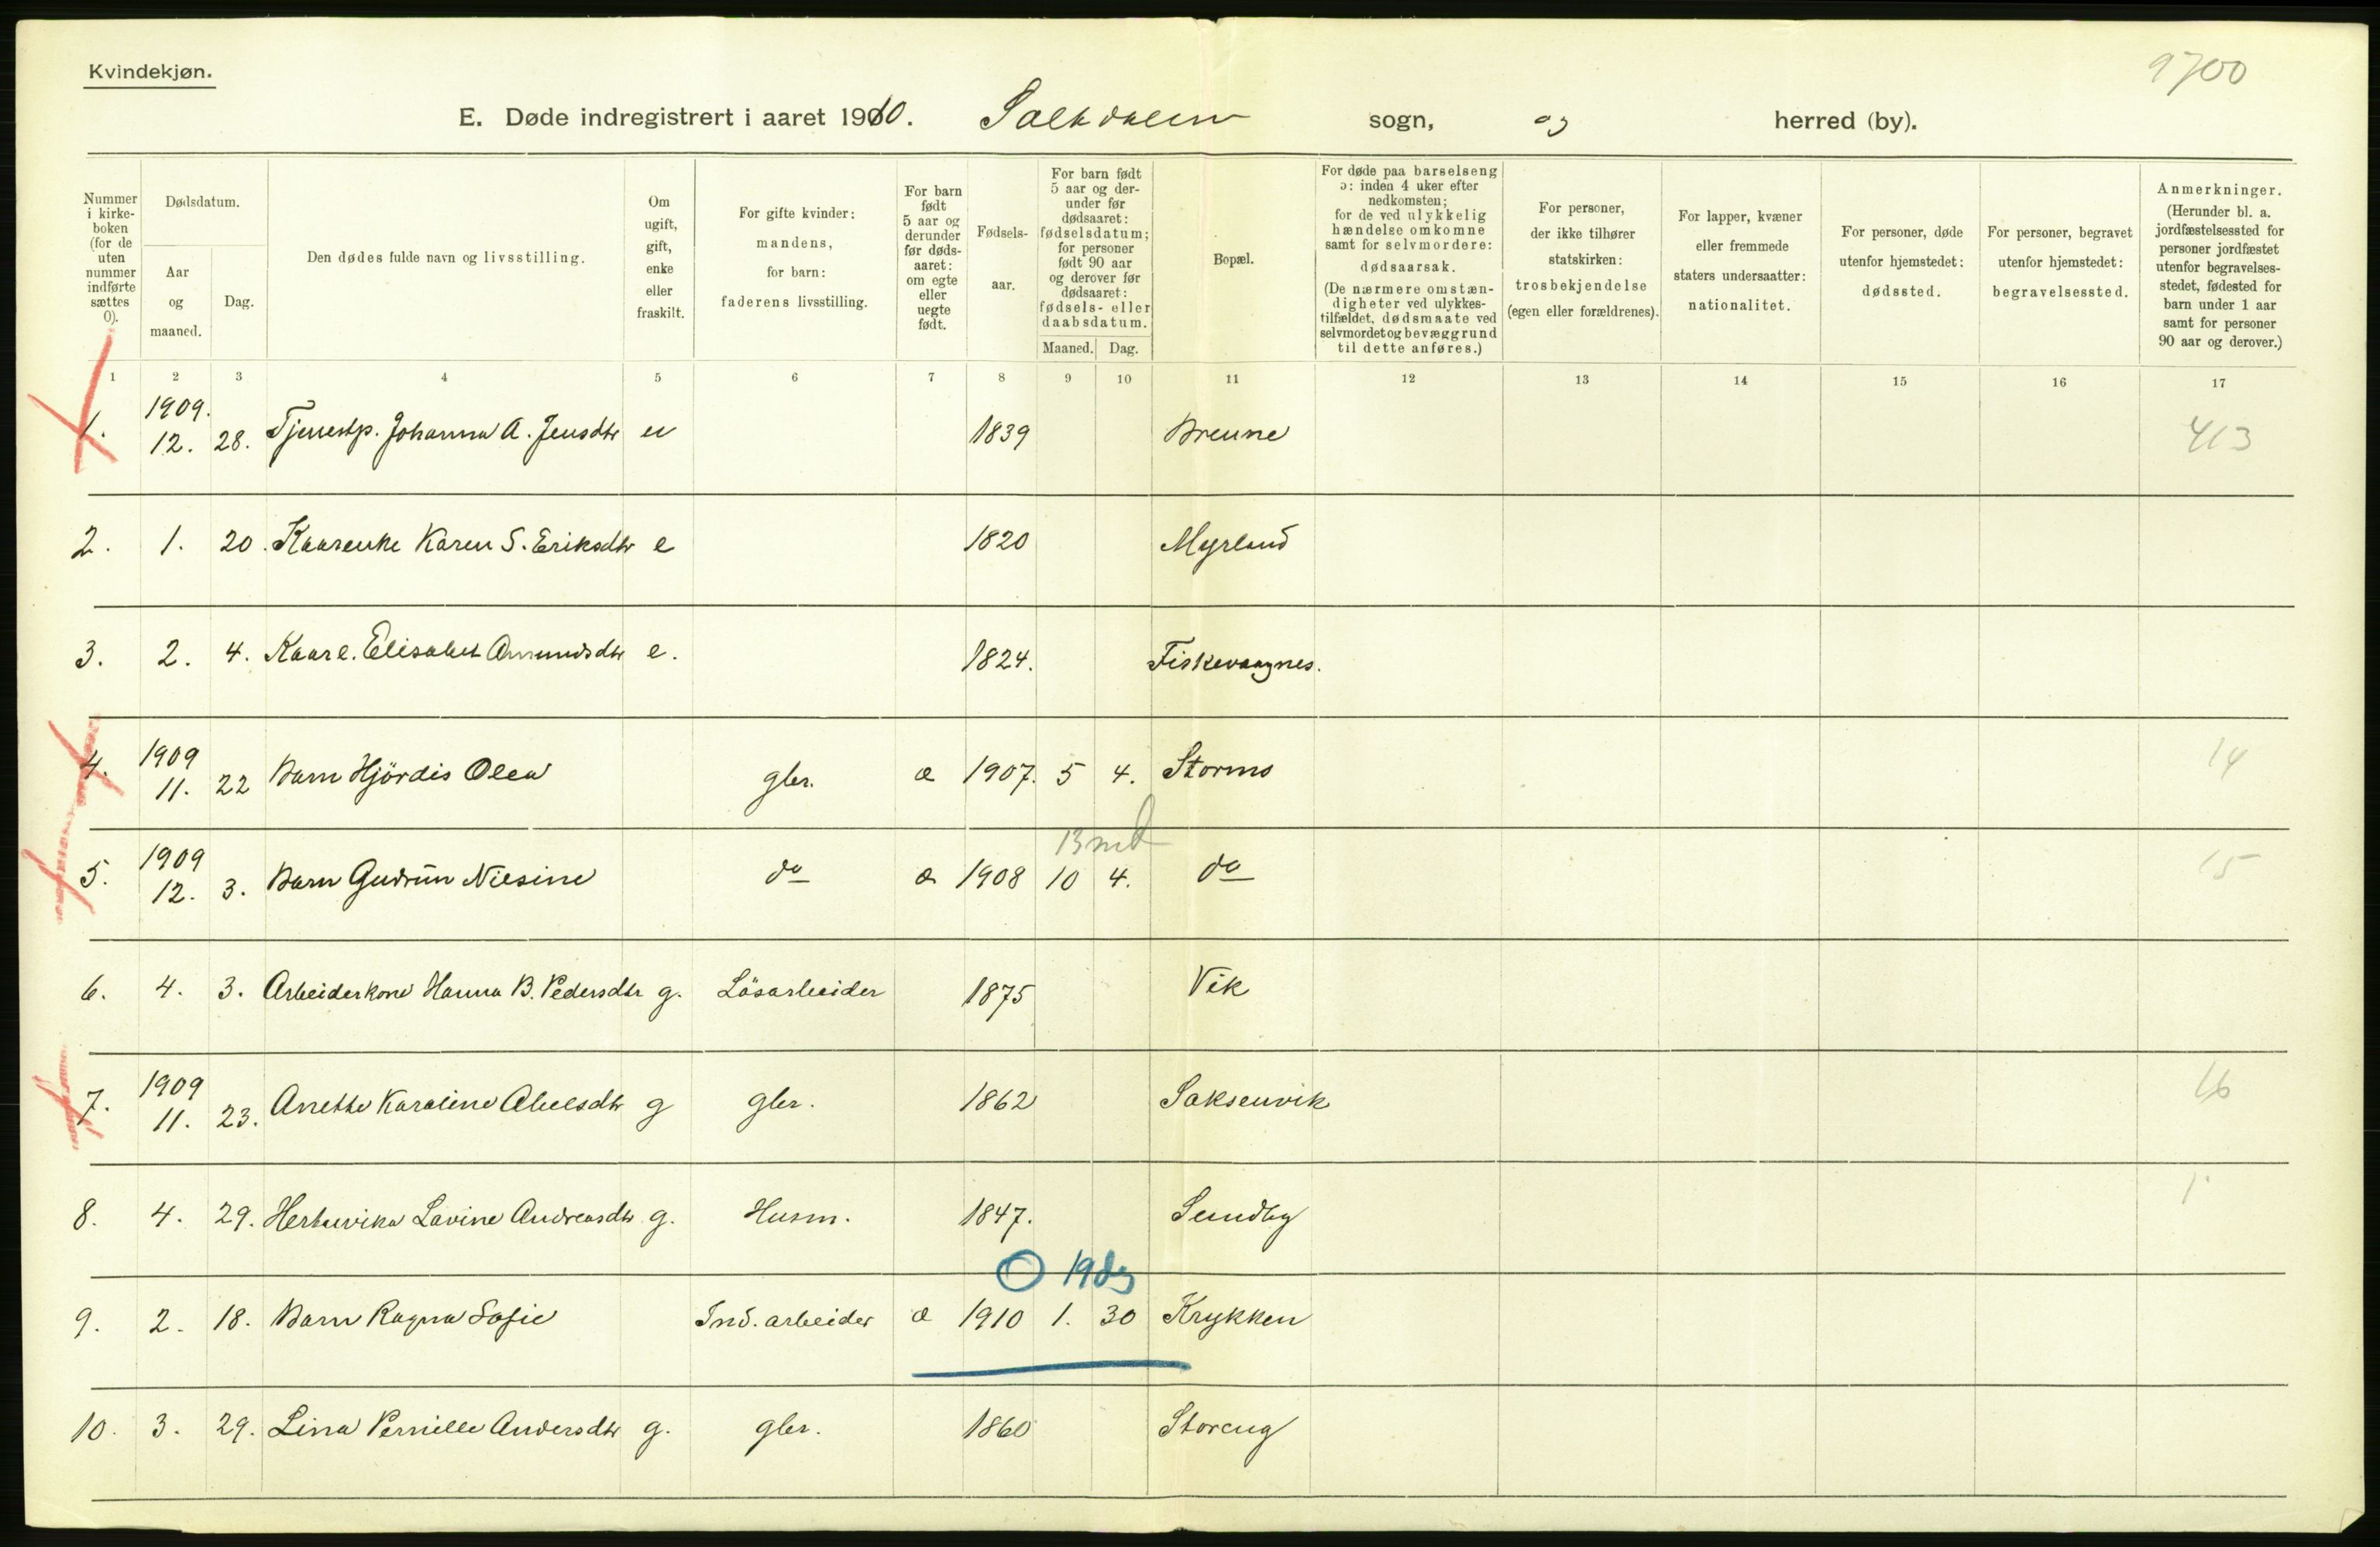 Kvindekjøn.
9700
E. Døde indregistrert i aaret 1910. Saltdalen sogn, og herred (by).
Nummer i kirke-boken (for de uten nummer indførte sættes 0).
Dødsdatum.
Aar og maaned.
Dag.
Den dødes fulde navn og livsstilling.
Om ugift, gift, enke eller fraskilt.
For gifte kvinder: mandens, for barn: faderens livsstilling.
For barn født 5 aar og derunder før døds-aaret: om egte eller uegte født.
Fødsels-aar.
For barn født 5 aar og der-under før dødsaaret: fødselsdatum; for personer født 90 aar og derover før dødsaaret: fødsels- eller daabsdatum.
Maaned. Dag.
Bopæl.
For døde paa barselseng ɔ: inden 4 uker efter nedkomsten; for de ved ulykkelig hændelse omkomne samt for selvmordere: dødsaarsak. (De nærmere omstæn-digheter ved ulykkes-tilfældet, dødsmaate ved selvmordet og bevæggrund til dette anføres.)
For personer, der ikke tilhører statskirken: trosbekjendelse (egen eller forældrenes).
For lapper, kvæner eller fremmede staters undersaatter: nationalitet.
For personer, døde utenfor hjemstedet: dødssted.
For personer, begravet utenfor hjemstedet: begravelsessted.
Anmerkninger. (Herunder bl. a. jordfæstelsessted for personer jordfæstet utenfor begravelses-stedet, fødested for barn under 1 aar samt for personer 90 aar og derover.)
1 2 3 4 5 6 7 8 9 10 11 12 13 14 15 16 17
1. 1909. 12. 28. Tjenestp. Johanna A. Jensdtr u 1839 Brenne 413
2. 1. 20. Kaarenke Karen S. Eriksdtr e 1820 Myrland
3. 2. 4. Kaare. Elisabet Amundsdtr e. 1824. Fiskevaagnes.
4. 1909 11. 22 Barn Hjördis Olea gbr. æ 1907. 5 4. Stormo 14
13 md
5. 1909 12. 3. Barn Gudrun Nilsine do æ 1908 10 4. do 15
6. 4. 3. Arbeiderkone Hanna B. Pedersdtr g. Lösarbeider 1875 Vik
7. 1909 11. 23. Anette Karoline Abelsdtr g gbr. 1862 Saksenvik 16
8. 4. 29. Lavine Andreasdtr g. Husm. 1847. Sundby 1
0 19 dg
9. 2. 18. Barn Ragna Sofie Ind. arbeider æ 1910 1. 30 Krykken
10. 3. 29. Lina Pernille Andersdtr g. gbr. 1860 Storeng